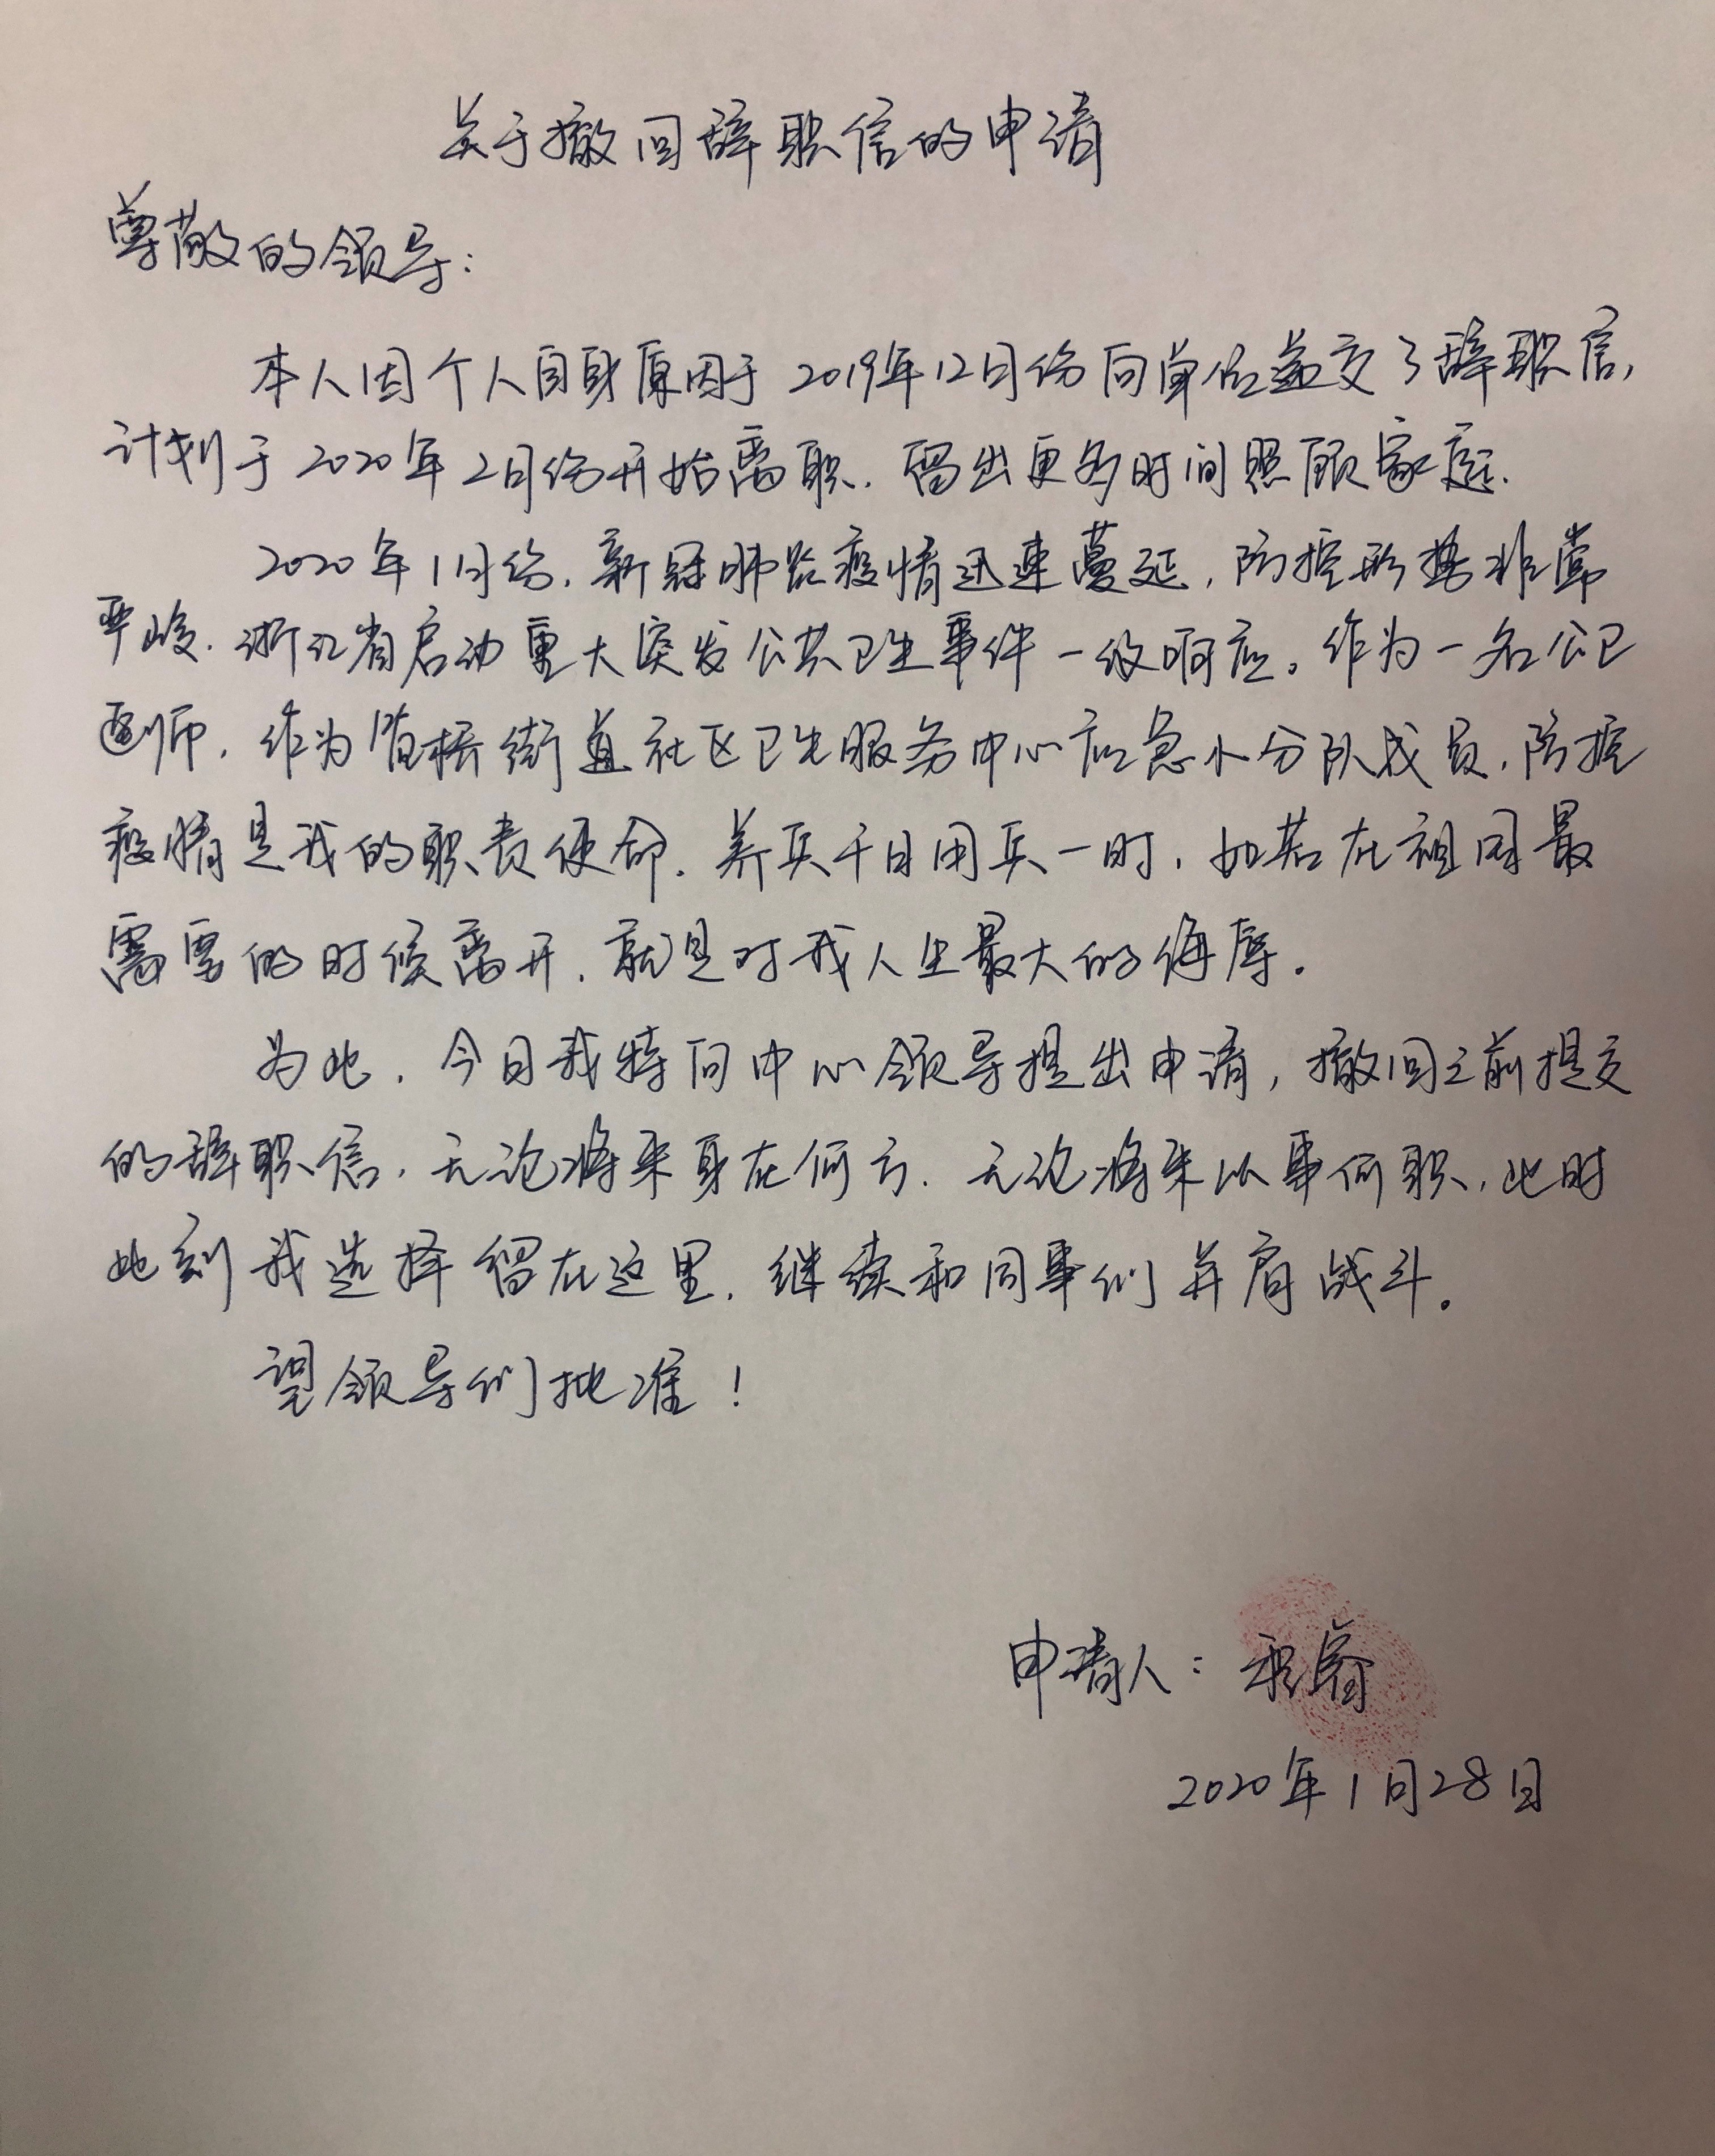 关于撤回辞职信的申请
尊敬的领导：
本人因个人自身原因于2019年12月份向单位递交了辞职信，
计划于2020年2月份开始离职．留出更多时间照顾家庭．
2020年1月份，新冠肺炎疫情迅速蔓延，防控形势非常
严峻．浙江省启动重大突发公共卫生事件一级响应。作为一名公卫
医师，作为堰桥街道社区卫生服务中心应急小分队成员，防控
疫情是我的职责使命．养兵千日用兵一时，如若在祖国最
需要的时候离开，就是对我人生最大的侮辱。
为此，今日我特向中心领导提出申请，撤回之前提交
的辞职信，无论将来身在何方．无论将来从事何职，此时
此刻我选择留在这里．继续和同事们并肩战斗。
望领导们批准！
申请人：
2020年1月28日